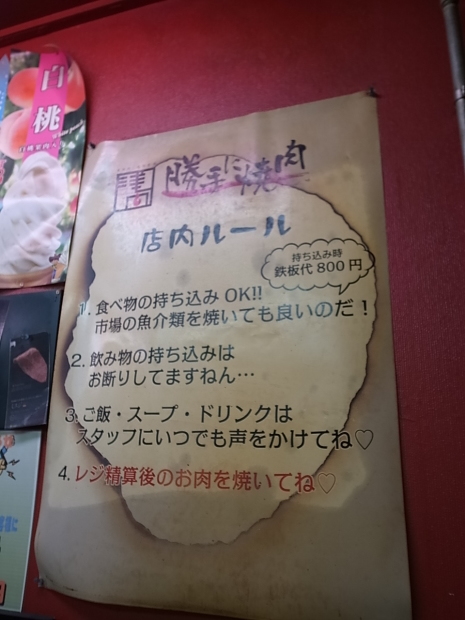 白桃
勝手に焼肉
店内ルール
持ち込み時
鉄板代800円
1. 食べ物の持ち込み OK!!
市場の魚介類を焼いても良いのだ！
2. 飲み物の持ち込みは
お断りしてますねん…
3. ご飯・スープ・ドリンクは
スタッフにいつでも声をかけてね♡
4. レジ精算後のお肉を焼いてね♡